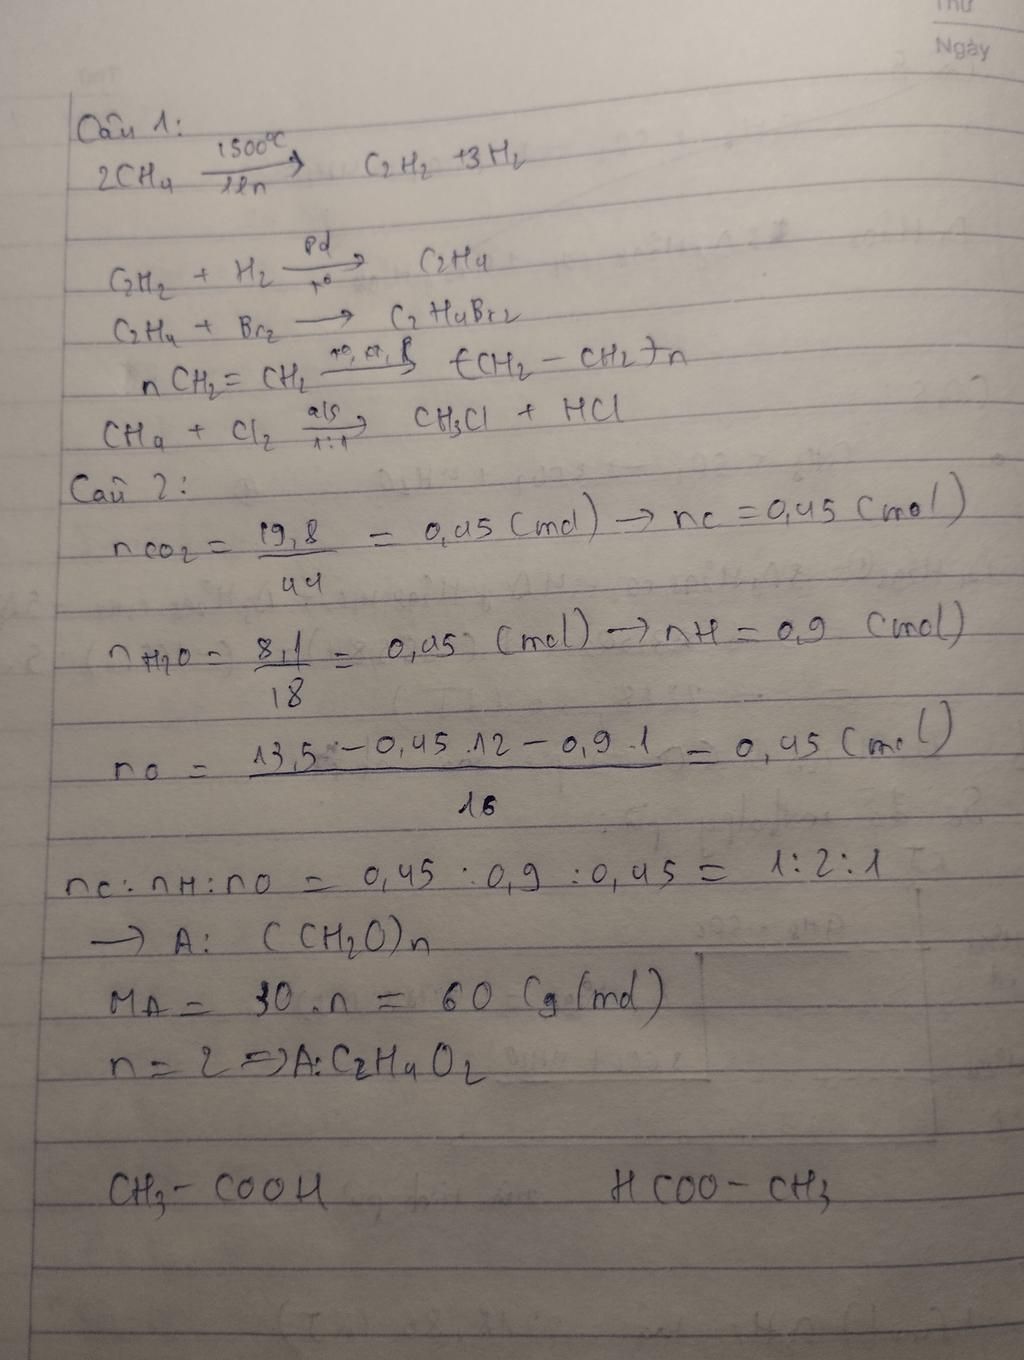 Thứ
Ngày
Câu 1:
2CH4 1500°C lln → C2H2 + 3H2
C2H2 + H2 Pd t° → C2H4
C2H4 + Br2 → C2H4Br2
nCH2 = CH2 t°, xt, P → (CH2 - CH2)n
CH4 + Cl2 a/s 1:1 → CH3Cl + HCl
Câu 2:
nCO2 = 19,8/44 = 0,45 (mol) → nC = 0,45 (mol)
nH2O = 8,1/18 = 0,45 (mol) → nH = 0,9 (mol)
nO = (13,5 - 0,45.12 - 0,9.1)/16 = 0,45 (mol)
nC : nH : nO = 0,45 : 0,9 : 0,45 = 1:2:1
→ A: (CH2O)n
MA = 30.n = 60 (g/mol)
n = 2 => A: C2H4O2
CH3 - COOH HCOO - CH3